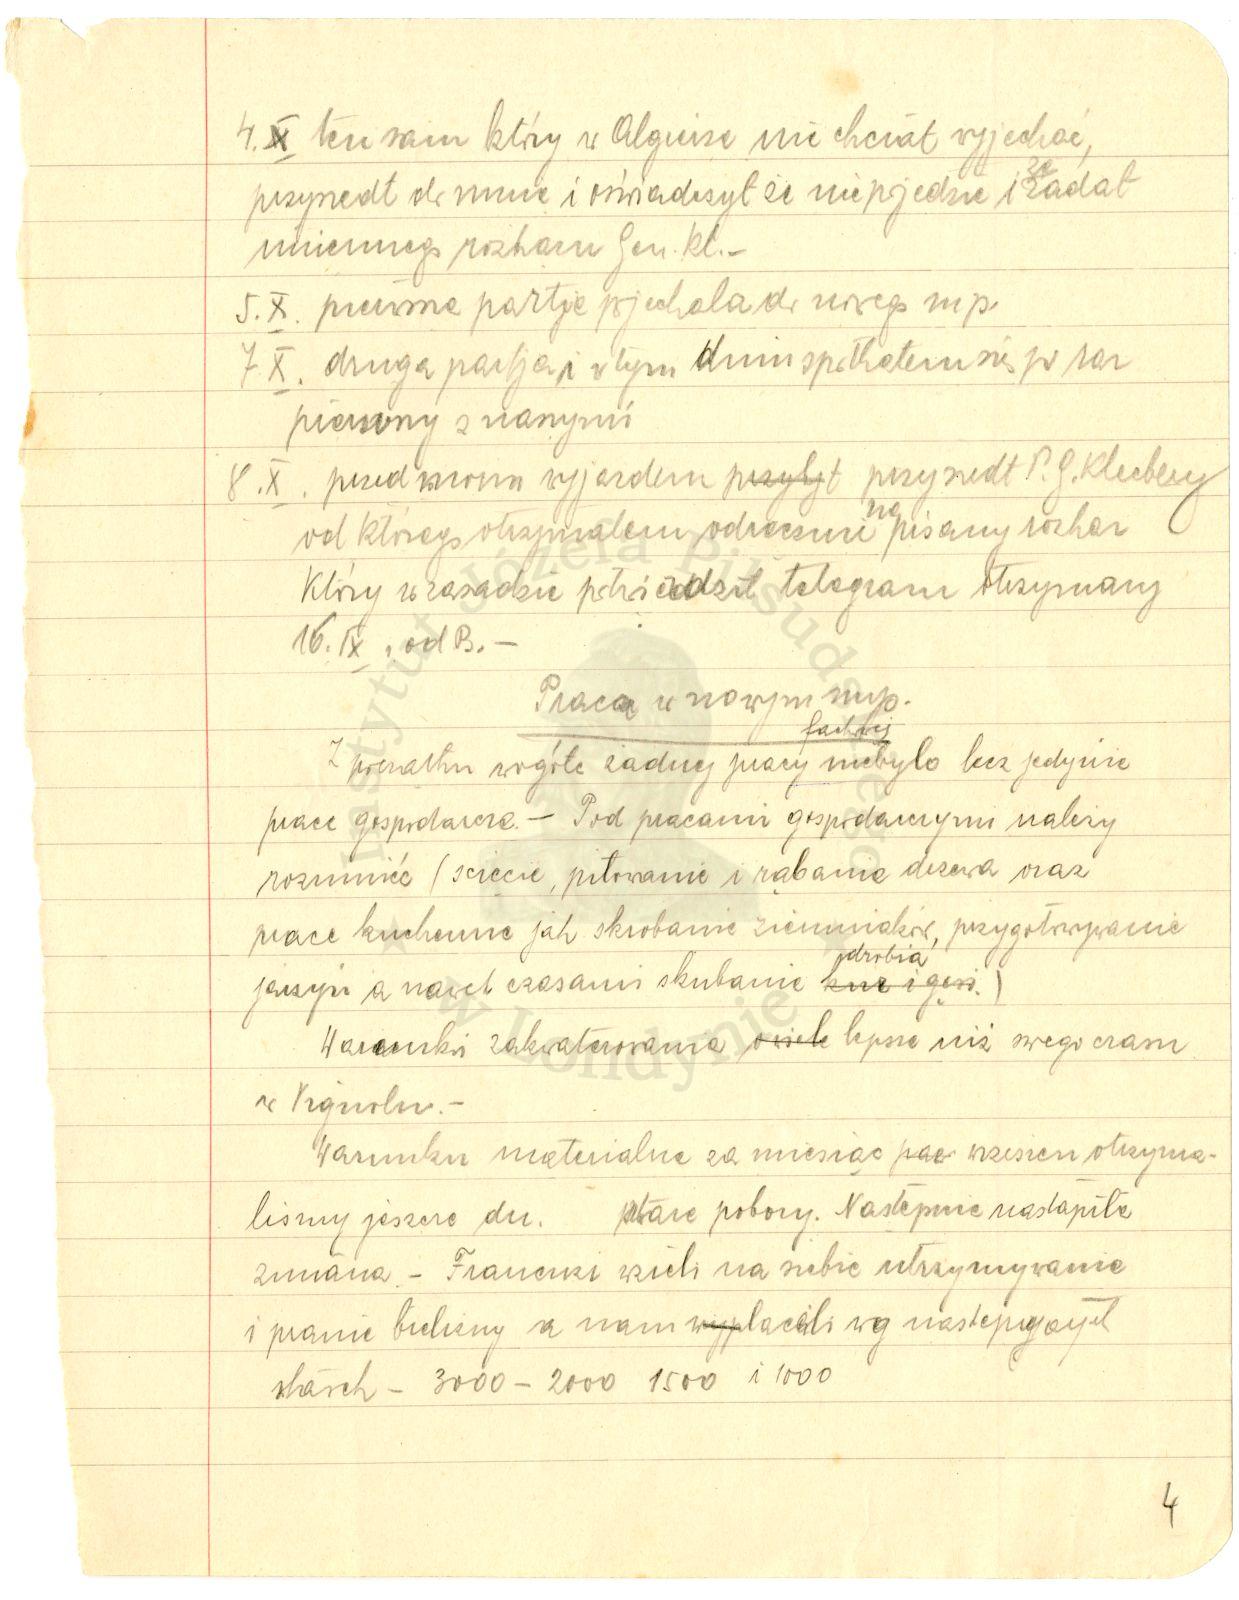 4.X ten sam który w Algierze nie chciał wyjechać,
przyszedł do mnie i oświadczył że nie pojedzie i zażadał
imiennego rozkazu Gen. Kl.-
5.X. pierwsza partja pojechała do nowego mp.
7.X. druga partja i w tym dniu spotkałem się po raz
pierwszy z naszymi
8.X. przed moim wyjazdem przybył przyszedł P. G. Kleeberg
od którego otrzymałem odręcznie napisany rozkaz
który w zasadzie potwierdził telegram otrzymany
16.IX. od B. -
Praca w nowym mp.
Z początku wogóle żadnej pracy fachowej niebyło lecz jedynie
prace gospodarcze. - Pod pracami gospodarczymi należy
rozumieć (ścięcie, piłowanie i rąbanie drzewa oraz
prace kuchenne jak skrobanie ziemniaków, przygotowywanie
jarzyn a nawet czasami skubanie kur i gęsi. drobia)
Warunki zakwaterowania o wiele lepsze niż swego czasu
w Vignolu. -
Warunki materialne za miesiąc wrzesień otrzyma-
liśmy jeszcze dn. stare pobory. Następnie nastąpiła
zmiana. - Francuzi wzieli na siebie utrzymywanie
i pranie bielizny a nam wypłacali wg następujących
- 3000 - 2000 1500 i 1000
4
Instytut Józefa Piłsudskiego
w Londynie